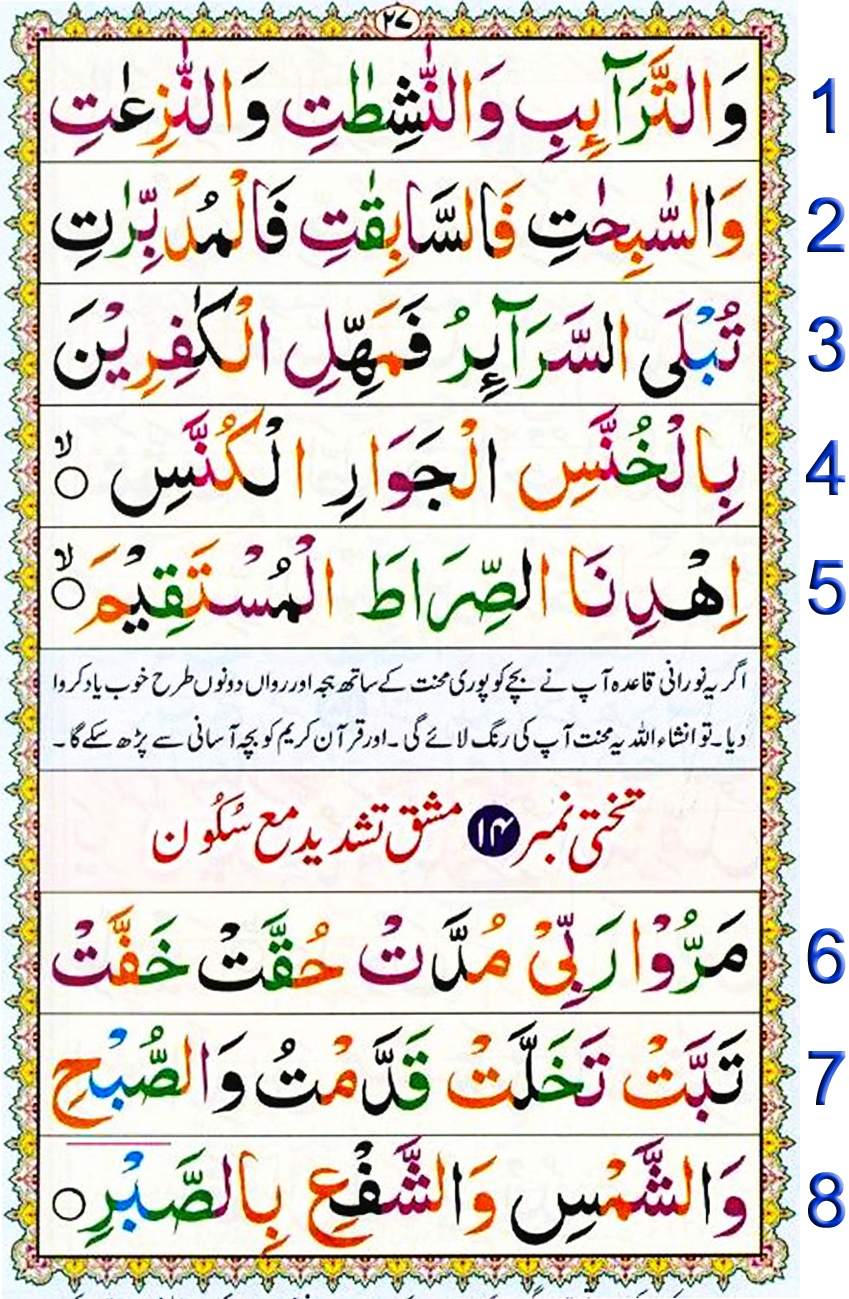 ۲۷
وَالتَّرَآئِبِ وَالنّٰشِطٰتِ وَالنّٰزِعٰتِ 1
وَالسّٰبِحٰتِ فَالسَّابِقٰتِ فَالْمُدَبِّرٰتِ 2
تُبْلَى السَّرَآئِرُ فَمَهِّلِ الْكٰفِرِيْنَ 3
بِالْخُنَّسِ الْجَوَارِ الْكُنَّسِ ○ۙ 4
اِهْدِنَا الصِّرَاطَ الْمُسْتَقِيْمَ ○ۙ 5
اگر یہ نورانی قاعدہ آپ نے بچے کو پوری محنت کے ساتھ ہجہ اور رواں دونوں طرح خوب یاد کروا
دیا۔ تو انشاء اللہ یہ محنت آپ کی رنگ لائے گی۔ اور قرآن کریم کو بچہ آسانی سے پڑھ سکے گا۔
تختی نمبر ۱۴ مشق تشدید مع سُکُون
مَرُّوْا رَبِّیْ مُدَّتْ حُقَّتْ خَفَّتْ 6
تَبَّتْ تَخَلَّتْ قَدَّمْتُ وَالصُّبْحِ 7
وَالشَّمْسِ وَالشَّفْعِ بِالصَّبْرِ ○ 8